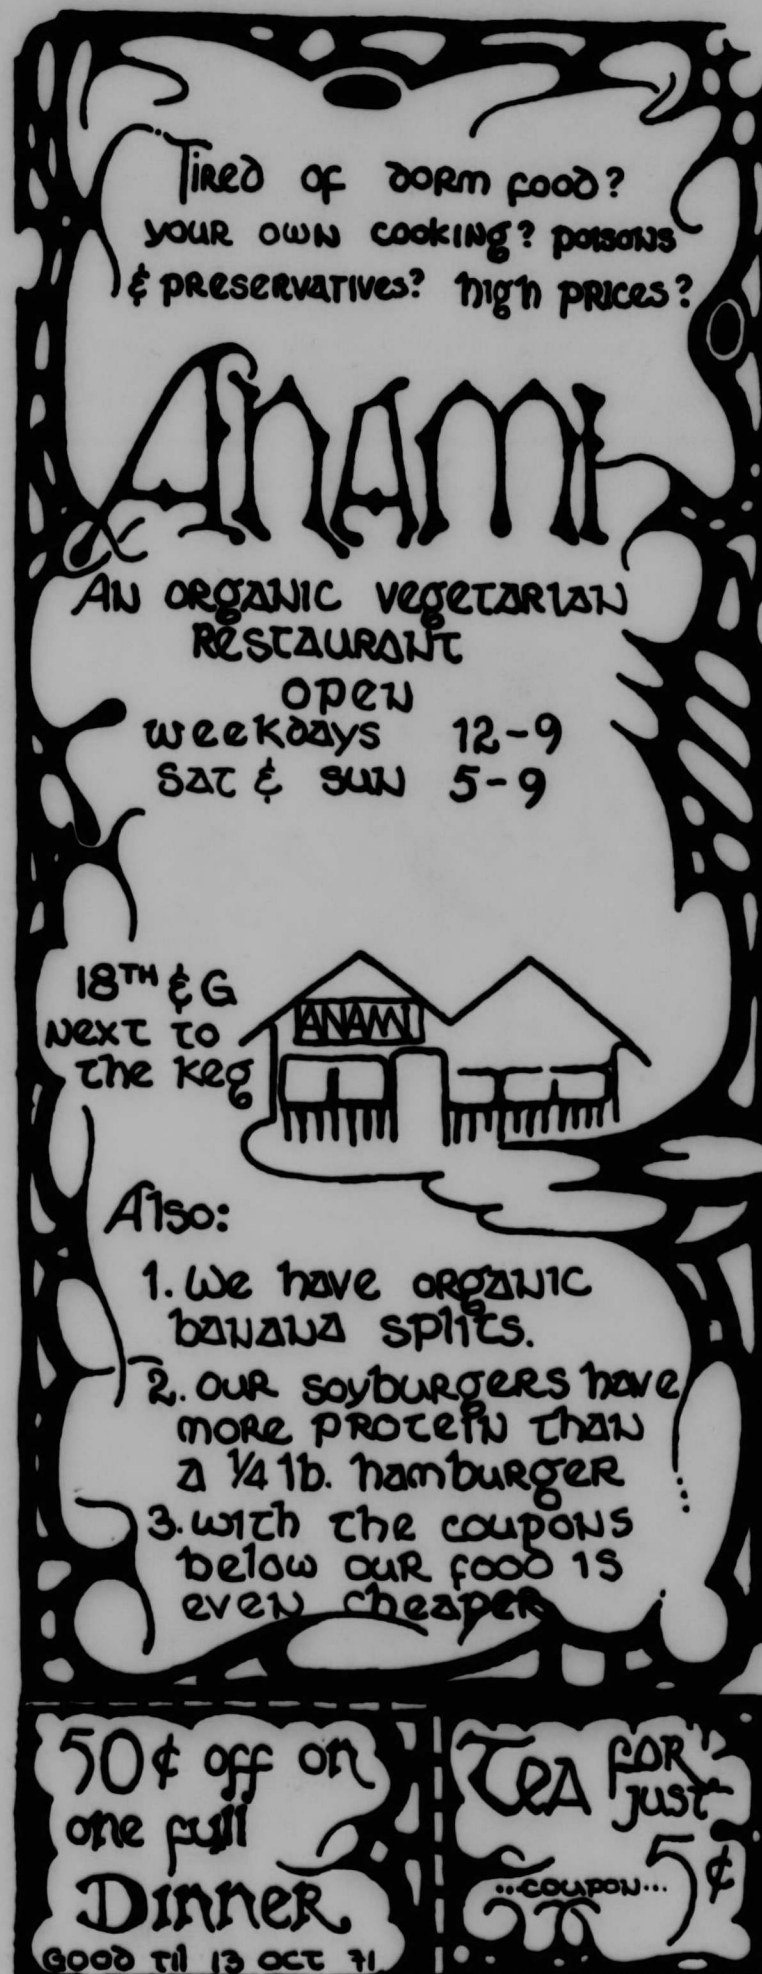 Tired of dorm food?
your own cooking? poisons
& preservatives? high prices?
Anami
An organic vegetarian
restaurant
open
weekdays 12-9
Sat & Sun 5-9
18TH & G
next to
the Keg
ANAMI
Also:
1. We have organic
banana splits.
2. our soyburgers have
more protein than
a 1/4 lb. hamburger
3. with the coupons
below our food is
even cheaper
50¢ off on
one full
Dinner
Good til 13 Oct 71
Tea for
just
5¢
...coupon...